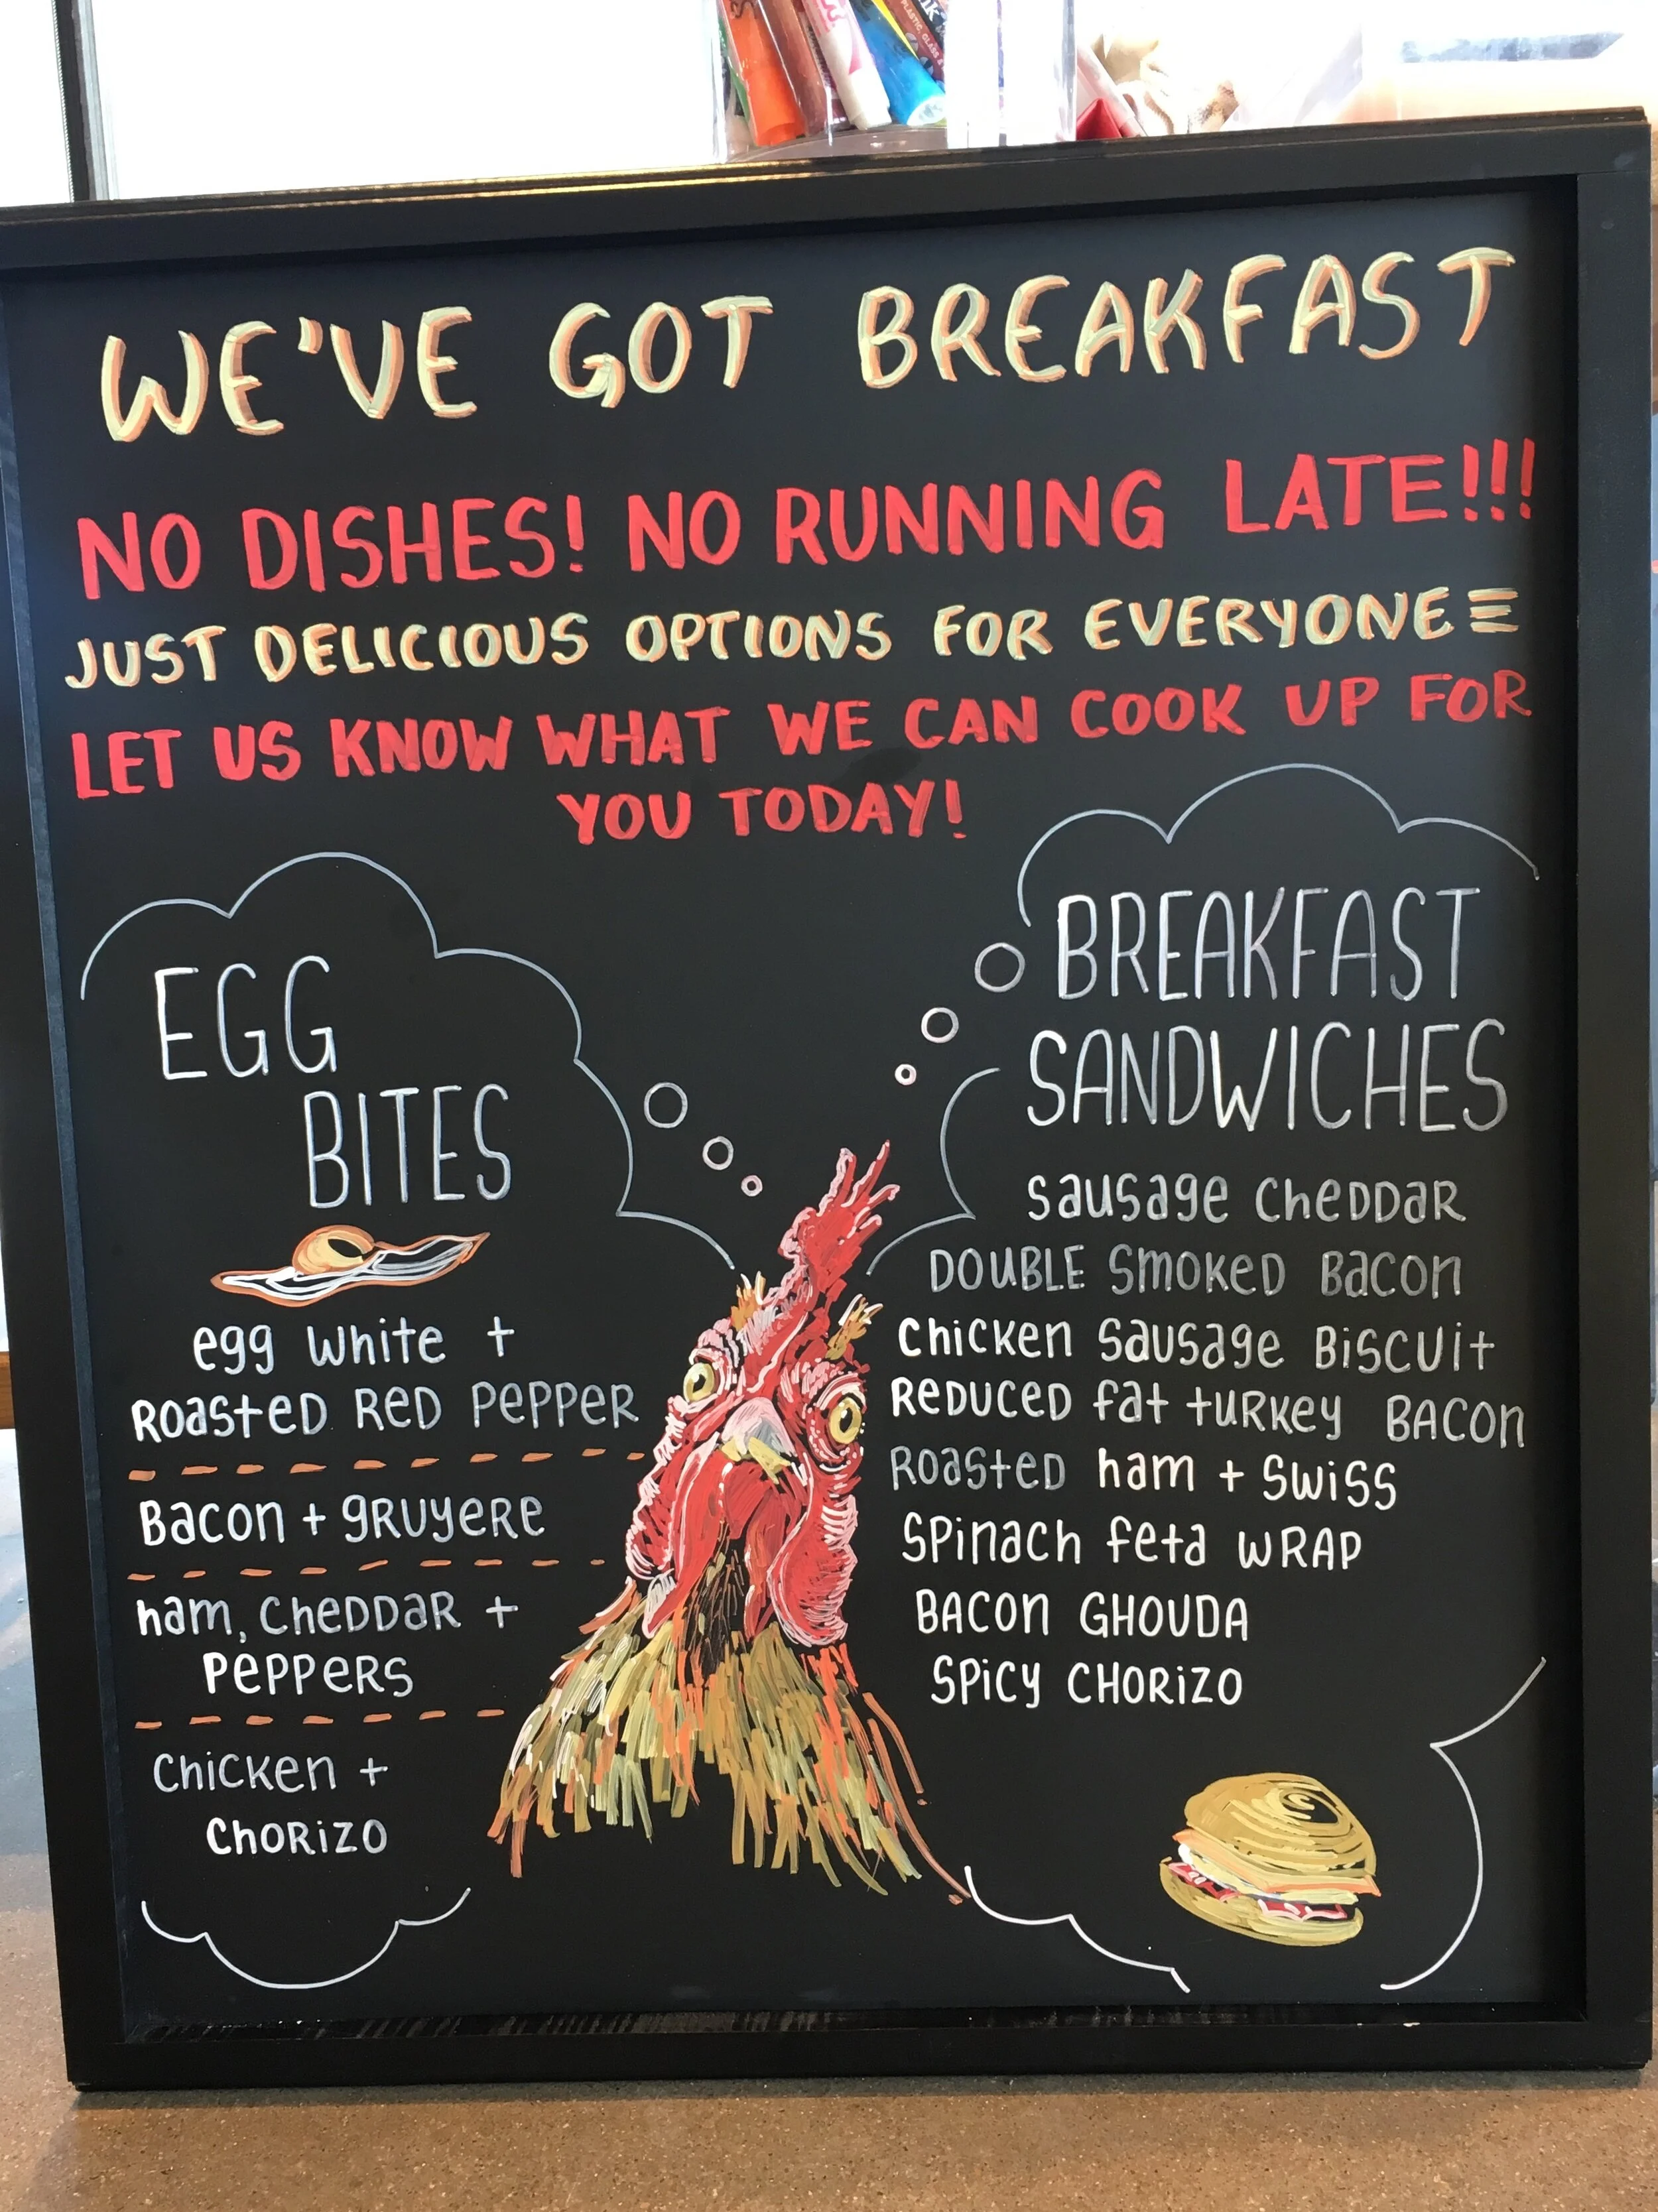 WE'VE GOT BREAKFAST
NO DISHES! NO RUNNING LATE!!!
JUST DELICIOUS OPTIONS FOR EVERYONE
LET US KNOW WHAT WE CAN COOK UP FOR
YOU TODAY!
EGG
BITES
egg white +
ROASTED RED PEPPER
Bacon + gRUYERE
ham, CHEDDAR +
PEPPERS
Chicken +
CHORIZO
BREAKFAST
SANDWICHES
Sausage CHEDDAR
DOUBLE SMOKED BACON
Chicken Sausage BISCUIT
REDUCED fat tURKEY BACON
ROASTED ham + SWISS
SPinach feta WRAP
BACON GHOUDA
SPICY CHORIZO